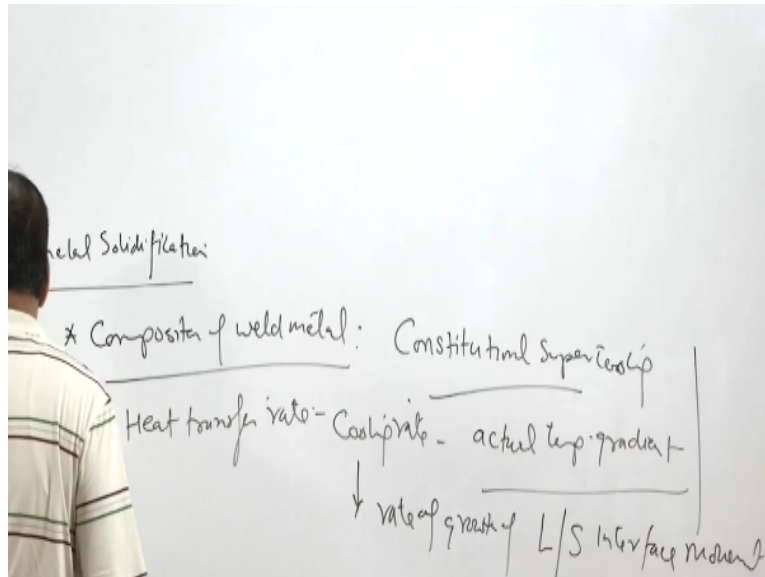 Metal Solidification
* Composition of weld metal: Constitutional Supercooling
Heat transfer rate - Cooling rate - actual temp. gradient
↓ rate of growth of L/S Interface movement